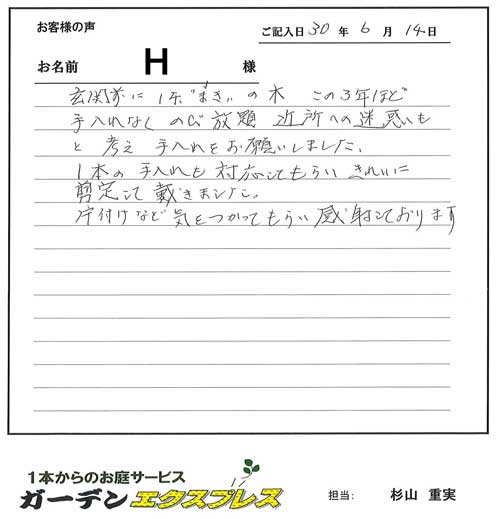 お客様の声
ご記入日 30 年 6 月 14 日
お名前 H 様
玄関前に1本"まき"の木 この3年ほど
手入れなく のび放題 近所への迷惑も
と考え 手入れをお願いしました。
1本の手入れも対応してもらい きれいに
剪定して戴きました。
片付けなど気をつかってもらい感謝しております
1本からのお庭サービス
ガーデンエクスプレス
担当: 杉山 重実